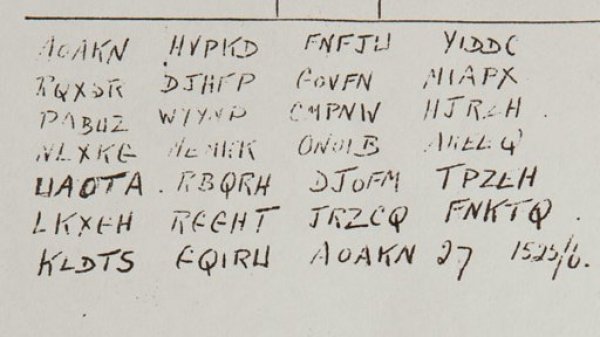 AOAKN HVPKD FNFJW YIDDC
RQXSR DJHFP GOVFN MIAPX
PABUZ WYYNP CMPNW HJRZH
NLXKG MEMKK ONOIB AKEEQ
WAOTA RBQRH DJOFM TPZEH
LKXGH RGGHT JRZCQ FNKTQ
KLDTS GQIRW AOAKN 27 1525/6.